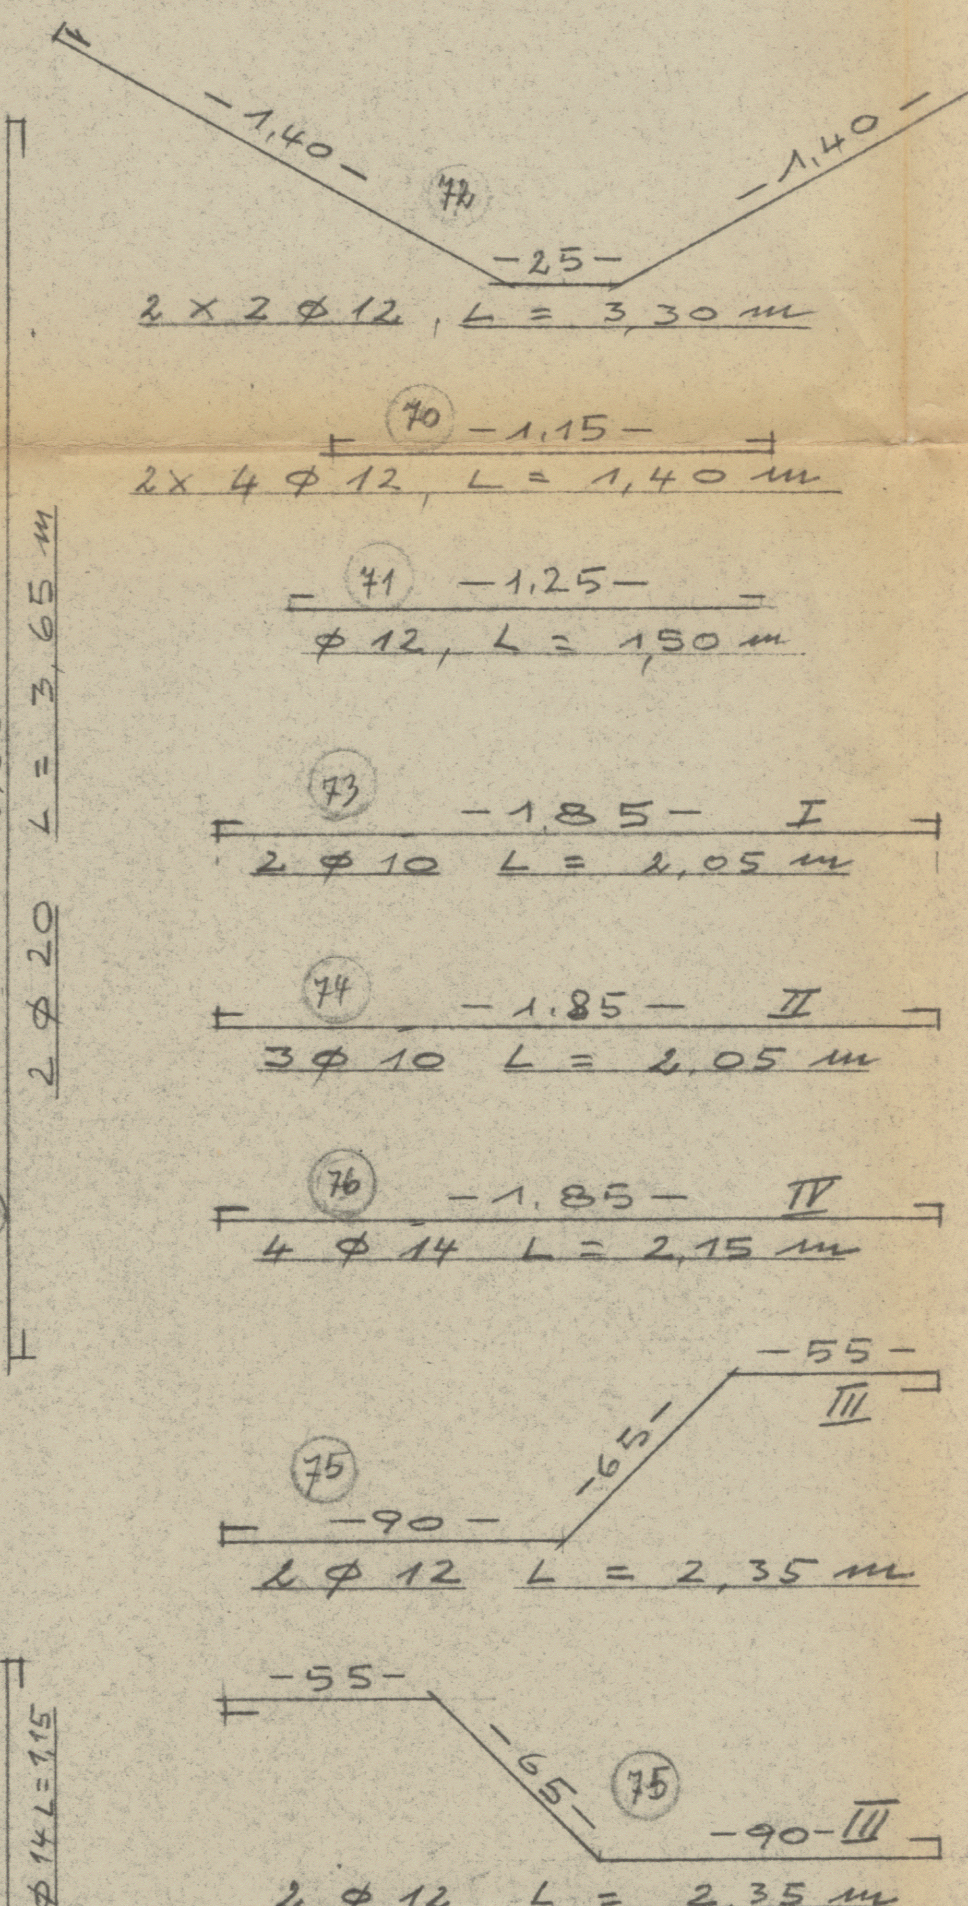 -1,40-
-1,40-
72
-25-
2 x 2 ϕ 12, L = 3,30 m
70 -1.15-
2x 4 ϕ 12, L = 1,40 m
71 -1.25-
ϕ 12, L = 1,50 m
73 -1.85- I
2 ϕ 10 L = 2,05 m
74 -1.85- II
3 ϕ 10 L = 2,05 m
76 -1.85- IV
4 ϕ 14 L = 2,15 m
-55-
III
-65-
75
-90-
2 ϕ 12 L = 2,35 m
-55-
-65-
75
-90- III
2 ϕ 12 L = 2,35 m
2 ϕ 20 L = 3,65 m
ϕ 14 L = 1,15